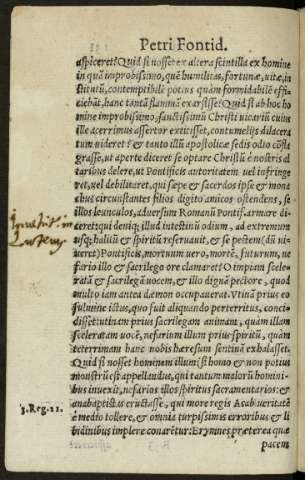 Petri Fontid.
aspiceret? Quid si nosset ex altera scintilla ex homine
in quā improbissimo, quē humilitas, fortunæ, uitæ, in
stitutū, contemptibilē potius quàm formidabilē effi
ciebāt, hanc tantā flammā exarsisse? Quid si ab hoc ho
mine improbissimo, sanctissimū Christi uicariū cuius
ille acerrimus assertor extitisset, contumelijs dilacera
tum uideret? & tanto illū apostolicæ sedis odio cōsta
grasse, ut aperte diceret se optare Christū è nostris al
taribus delere, ut Pontificis autoritatem uel infringe
ret, uel debilitaret, qui sæpe & sacerdos ipse & mona
chus circunstantes filios digito amicos ostendens, se
illos leunculos, aduersum Romanū Pontif. armare di=
ceret: qui deniq; illud intestinū odium, ad extremum
usq; halitū & spiritū reseruauit, & se pestem (dū ui=
ueret) Pontificis, mortuum uero, mortē, futurum, ne
fario illo & sacrilego ore clamaret? O impiam scele=
ratā & sacrilegā uocem, & illo dignā pectore, quod
multo iam antea dæmon occupauerat. Vtinā prius eo
fulminc ictus, quo fuit aliquando perterritus, conci=
disset: utinam prius sacrilegam animam, quàm illam
sceleratam uocē, nefarium illum prius spiritū, quàm
teterrimam hanc nobis hæresum sentinā exhalasset.
Quid si nosset hominem illum (si homo & non potius
monstrū est appellandus, qui tantum malorū homini=
bus inuexit, nefarios illos spiritus sacramentarios: &
anabaptistas eructasse, qui more regis Acab ueritatē
è medio tollere, & omnia turpissimis erroribus & li
bidinibus implere conarētur: Erynnes præterea quæ
3. Reg. 22.
pacem